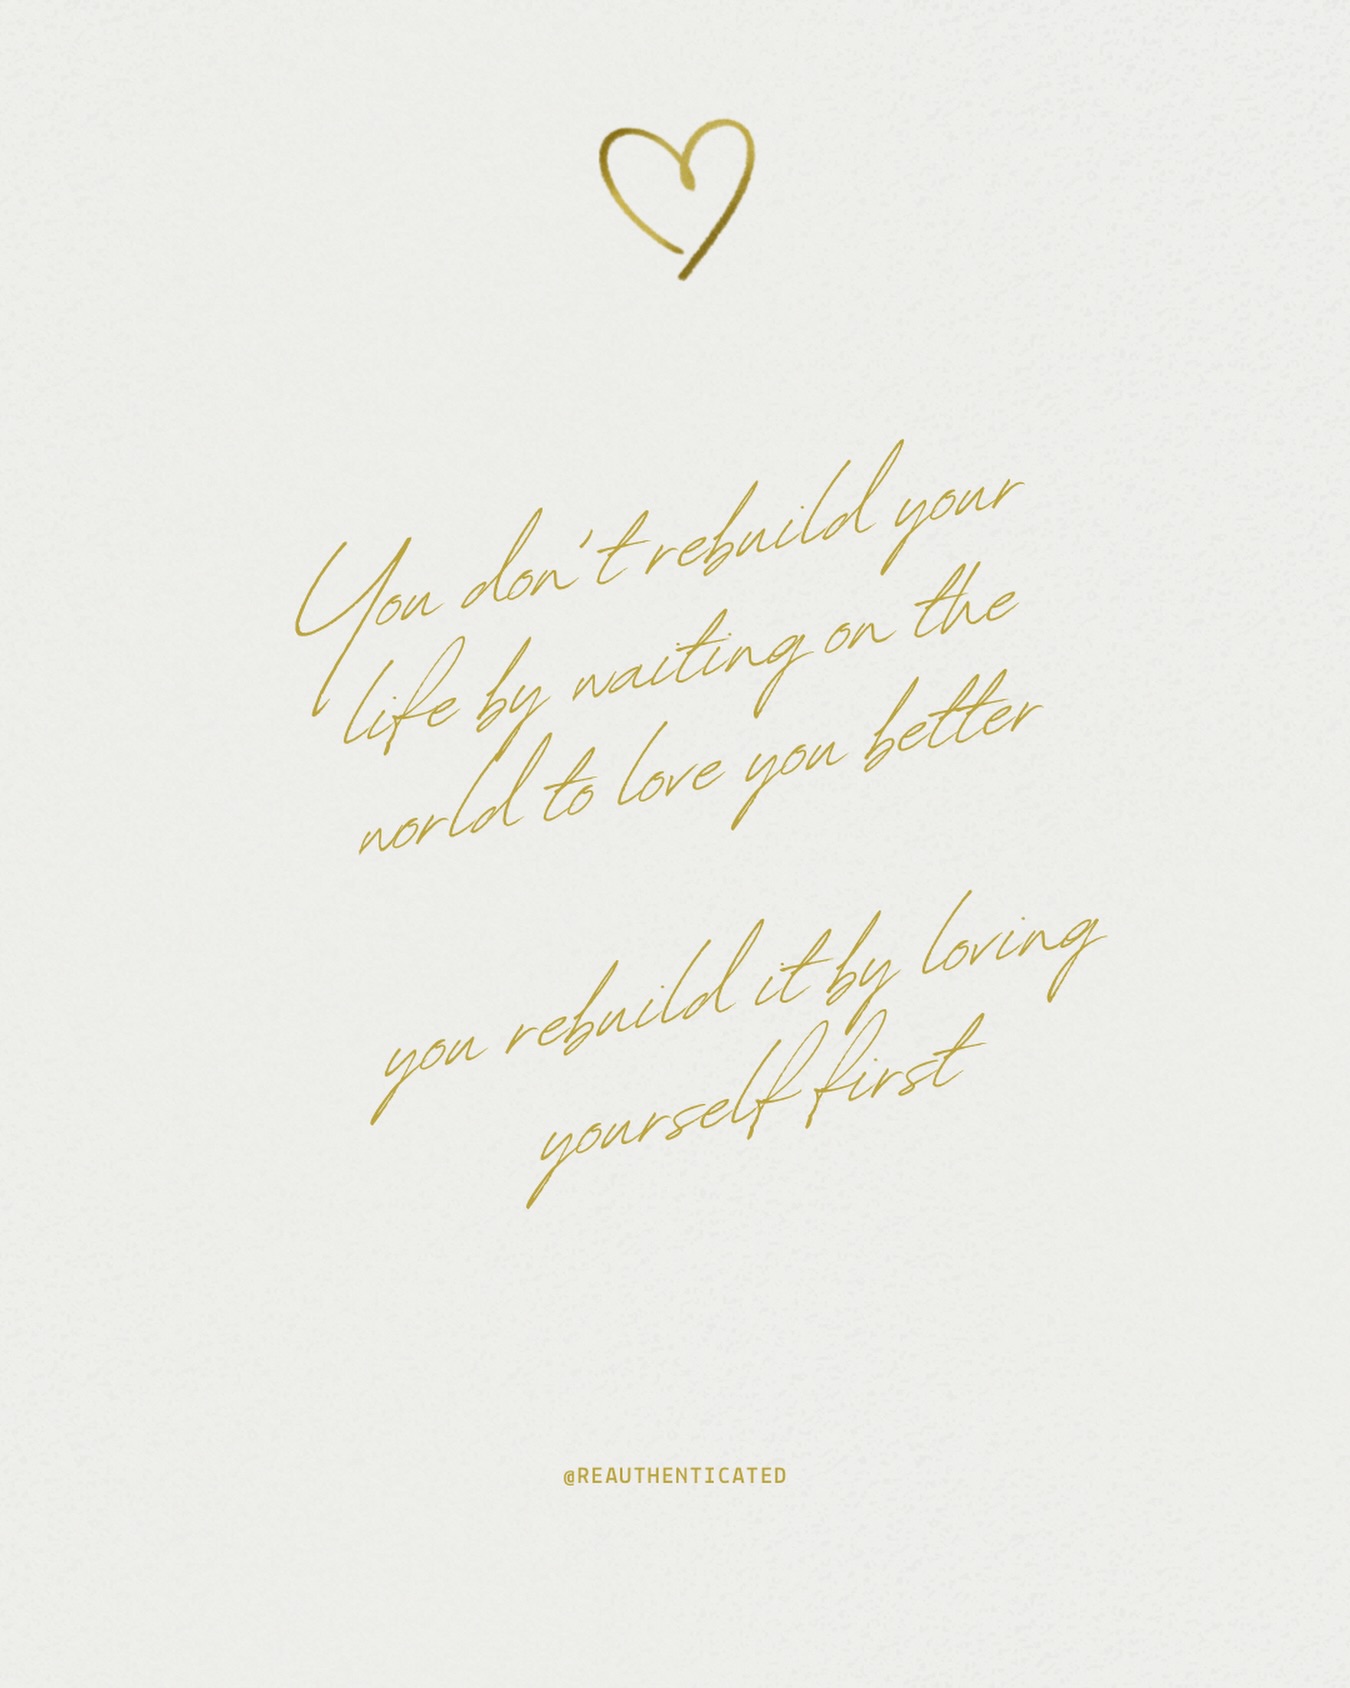 You don't rebuild your
life by waiting on the
world to love you better
you rebuild it by loving
yourself first
@REAUTHENTICATED